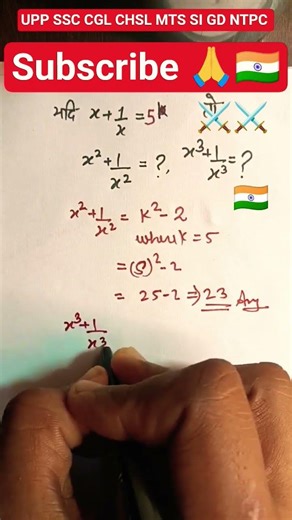 UPP SSC CGL CHSL MTS SI GD NTPC
Subscribe 🙏🇮🇳
यदि x+1/x =5k तो
x²+1/x² = ?, x³+1/x³ = ?
x²+1/x² = K²-2
where K = 5
= (5)²-2
= 25-2 ⇒ 23 Ans
x³+1/x³